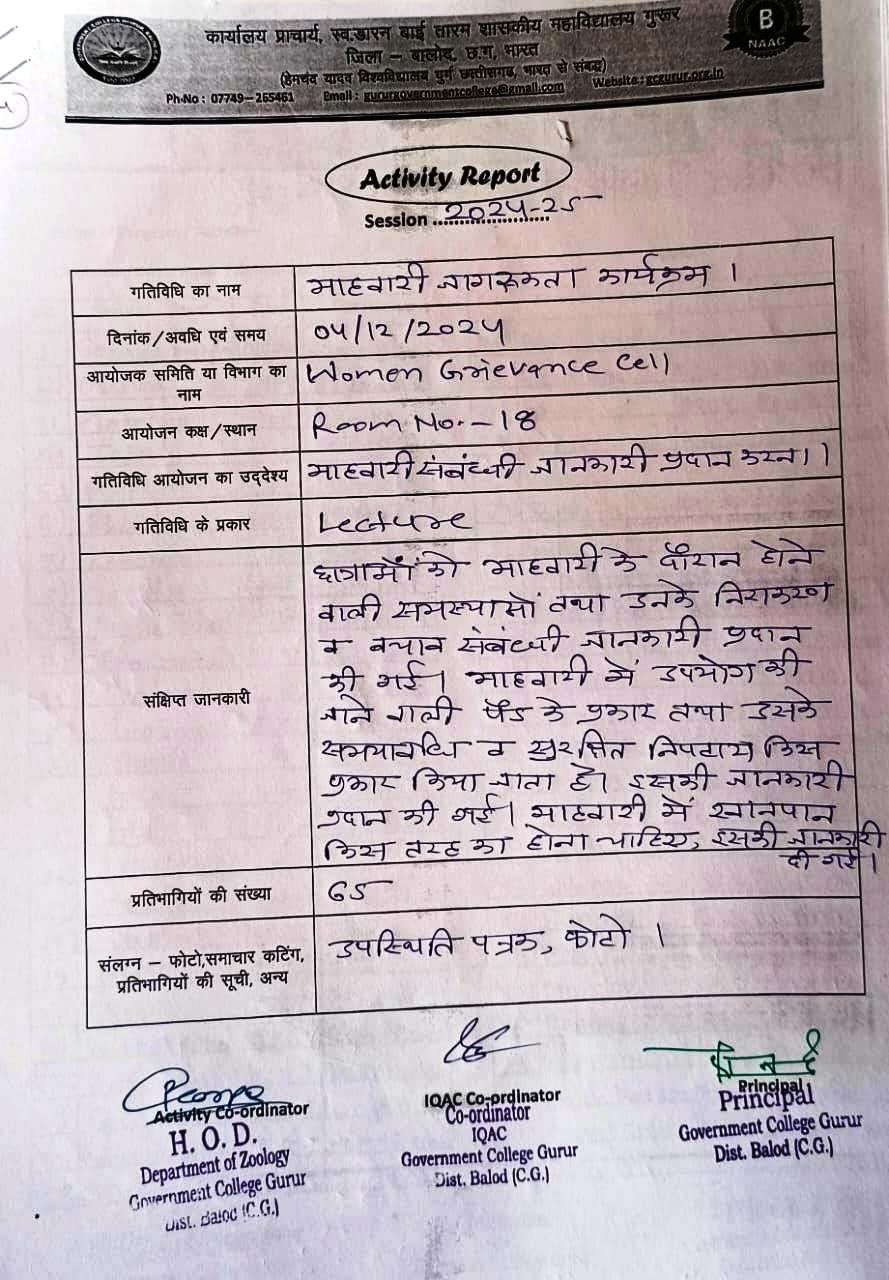 कार्यालय प्राचार्य, स्व.डारन बाई तारम शासकीय महाविद्यालय गुरूर
जिला – बालोद, छ.ग, भारत
(हेमचंद यादव विश्वविद्यालय दुर्ग छत्तीसगढ़, भारत से संबद्ध)
Ph.No : 07749-265461 Email : gururgovernmentcollege@gmail.com Website : gcgurur.org.in
B
NAAC
Activity Report
Session 2024-25
गतिविधि का नाम माहवारी जागरूकता कार्यक्रम ।
दिनांक/अवधि एवं समय 04/12/2024
आयोजक समिति या विभाग का नाम Women Grievance Cell
आयोजन कक्ष/स्थान Room No.-18
गतिविधि आयोजन का उद्देश्य माहवारी संबंधी जानकारी प्रदान करना ।
गतिविधि के प्रकार Lecture
संक्षिप्त जानकारी
छात्राओं को माहवारी के दौरान होने
वाली समस्याओं तथा उनके निराकरण
व बचाव संबंधी जानकारी प्रदान
की गई । माहवारी में उपयोग की
जाने वाली पैड के प्रकार तथा उसके
समयावधि व सुरक्षित निपटाय किस
प्रकार किया जाता है। इसकी जानकारी
प्रदान की गई । माहवारी में खानपान
किस तरह का होना चाहिए, इसकी जानकारी
दी गई ।
प्रतिभागियों की संख्या 65
संलग्न – फोटो,समाचार कटिंग, उपस्थिति पत्रक, फोटो ।
प्रतिभागियों की सूची, अन्य
Activity Co-ordinator
H. O. D.
Department of Zoology
Government College Gurur
Dist. Balod (C.G.)
IQAC Co-ordinator
Co-ordinator
IQAC
Government College Gurur
Dist. Balod (C.G.)
Principal
Principal
Government College Gurur
Dist. Balod (C.G.)